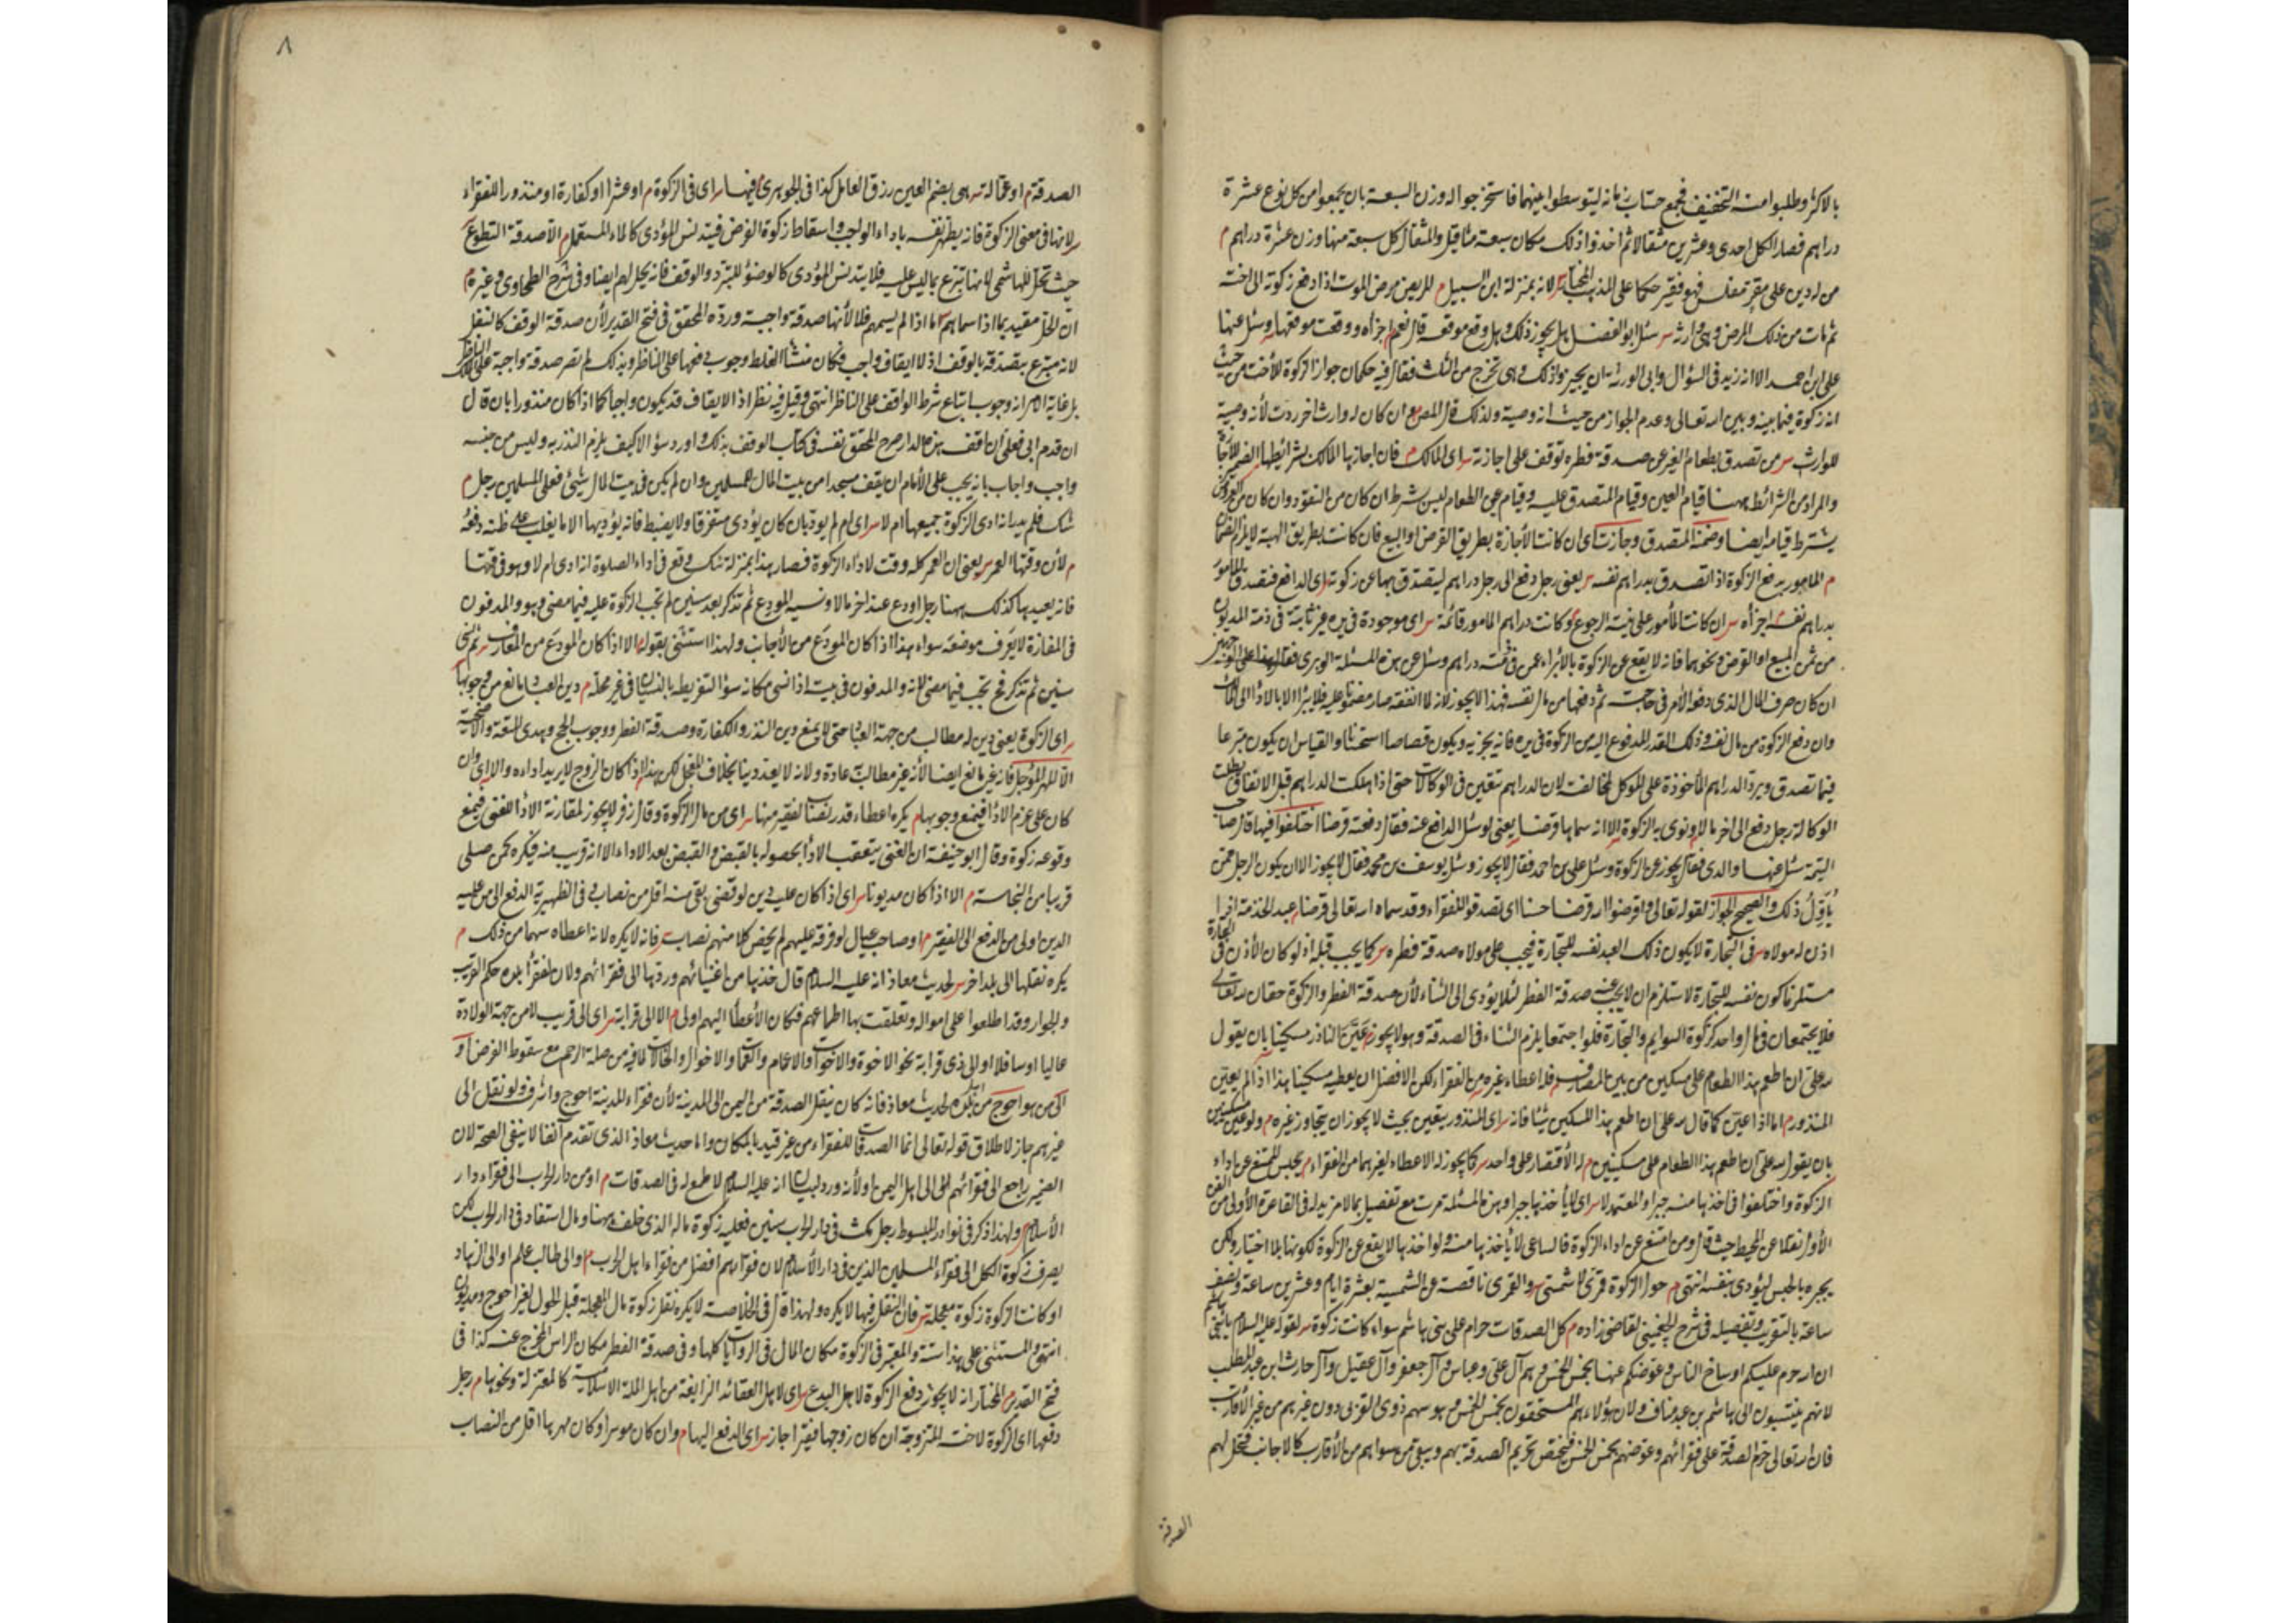 بالاكثر وطلبوا منه التخفيف فجمع حساب زمانه ليتوسطوا بينهما فاستخرجوا له وزن السبعة بان يجمعوا من كل نوع عشرة
دراهم فصار الكل احدى وعشرين مثقالا ثم اخذوا ذلك مكان سبعة مثاقيل والمثقال كل سبعة منها وزن عشرة دراهم م
من له دين على مقر مفلس فهو فقير حكما على المذهب المختار س لانه بمنزلة ابن السبيل م المريض مرض الموت اذا دفع زكوته الى اخته
ثم مات من ذلك المرض وهى وارثه س سئل ابو الفضل هل يجوز ذلك وهل وقع موقعه قال نعم اجزأه ووقعت موقعها وسئل عنها
على ابن احمد الا انه زيد فى السؤال وابى الورثة ان يجيزوا ذلك وهى تخرج من الثلث فقال فيه حكمان جواز الزكوة للأخت من حيث
انه زكوة فيما بينه وبين الله تعالى وعدم الجواز من حيث انه وصية ولذلك قال المص مع ان كان له وارث اخر ردت لأنه وصية
للوارث س من تصدق بطعام الغير عن صدقة فطره توقف على اجازته س اى المالك م فان اجازها المالك بشرائطها
والمراد من الشرائط ههنا قيام العين وقيام المتصدق عليه وقيام عين الطعام ليس بشرط ان كان من النقود وان كان من العروض
يشترط قيامه ايضا وضمنه المتصدق وجازت اى ان كانت الأجازة بطريق القرض او البيع فان كانت بطريق الهبة لا يلزم الضمان
م المامور بدفع الزكوة اذا تصدق بدراهم نفسه س يعنى رجل دفع الى رجل دراهم ليتصدق بها عن زكوته اى الدافع فتصدق المامور
بدراهم نفسه اجزأه س ان كانت المأمور على نية الرجوع وكانت دراهم المامور قائمة س اى موجودة فى يده غير ثابتة فى ذمة المديون
من ثمن المبيع او القرض ونحوهما فانه لا يقع عن الزكوة بالأبراء عمن فى ذمته دراهم وسئل عن هذه المسئلة الوبرى فقال
ان كان صرف المال الذى دفعه الآمر فى حاجته ثم دفعها من مال نفسه فهذا لا يجوز لانه لما انفقه صار مضمونا عليه فلا يبرأ الا بالاداء الى المالك
وان دفع الزكوة من مال نفسه وذلك القدر المدفوع اليه من الزكوة فى يده فانه يجزيه ويكون قصاصا استحسانا والقياس ان يكون متبرعا
فيما تصدق ويرد الدراهم المأخوذة على الموكل لمخالفته لان الدراهم تتعين فى الوكالات حتى اذا هلكت الدراهم قبل الانفاق بطلت
الوكالة رجل دفع الى اخر مالا ونوى به الزكوة الا انه سماها قرضا يعنى لو سئل الدافع عنه فقال دفعته قرضا اختلفوا فيها قال صاحب
اليتيمة سئل عنها والدى فقال يجوز عن الزكوة وسئل على بن احمد فقال لا يجوز وسئل يوسف بن محمد فقال لا يجوز الا ان يكون الرجل ممن
يأول ذلك والصحيح الجواز لقوله تعالى واقرضوا الله قرضا حسنا اى تصدقوا للفقراء وقد سماه الله تعالى قرضا م عبد الخدمة اذا
اذن له مولاه س فى التجارة لا يكون ذلك العبد نفسه للتجارة فيجب على مولاه صدقة فطره س كما يجب قبله اذ لو كان الأذن فى التجارة
مستلزما كون نفسه للتجارة لاستلزم ان لا يجب عنه صدقة الفطر لئلا يؤدى الى الثناء لأن صدقة الفطر والزكوة حقان لله تعالى
فلا يجتمعان فى مال واحد كزكوة السوايم والتجارة فلو اجتمعا يلزم الثناء فى الصدقة وهو لا يجوز م عين الناذر مسكينا بان يقول
لله على ان اطعم هذا الطعام على مسكين من بين المصارف م فله اعطاء غيره من الفقراء لكن الافضل ان يعطيه مسكينا هذا اذا لم يعين
المنذور م اما اذا عين كما قال لله على ان اطعم هذا المسكين شيئا فانه س اى المنذور يتعين بحيث لا يجوز ان يتجاوز غيره م ولو عين مسكينين
بان يقول لله على ان اطعم هذا الطعام على مسكينين م له الأقتصار على واحد س كما يجوز له الاعطاء لغيرهما من الفقراء م يحبس الممتنع عن اداء
الزكوة واختلفوا فى اخذها منه جبرا والمعتمد لا س اى لا يأخذها جبرا وهذه المسئلة مرت مع تفصيل بما لا مزيد له فى القاعدة الأولى من الفن
الأول نقلا عن المحيط حيث قال ومن امتنع عن اداء الزكوة فالساعى لا يأخذها منه ولو اخذها لا يقع عن الزكوة لكونها بلا اختيار ولكن
يجبره بالحبس ليؤدى بنفسه انتهى م حول الزكوة قمرى لا شمسى س والقمرى ناقصة عن الشمسية بعشرة ايام وعشرين ساعة ونصف
ساعة بالتقريب وتفصيله فى شرح الجغمينى لقاضى زاده م كل الصدقات حرام على بنى هاشم سواء كانت زكوة س لقوله عليه السلام يا بنى هاشم
ان الله حرم عليكم اوساخ الناس وعوضكم عنها بخمس الخمس وهم آل على وعباس وآل جعفر وآل عقيل وآل حارث ابن عبد المطلب
لانهم ينتسبون الى هاشم بن عبد مناف ولان هؤلاء هم المستحقون بخمس الخمس وهو سهم ذوى القربى دون غيرهم من غير الأقارب
فان الله تعالى حرم الصدقة على فقرائهم وعوضهم بخمس الخمس فيختص تحريم الصدقة بهم ويبقى من سواهم من الأقارب كالاجانب فتحل لهم
الصدقة
٨
الصدقة م او عمالة س هى بضم العين رزق العامل كذا فى الجوهرى م فيها س اى فى الزكوة م او عشرا او كفارة او منذورا للفقراء
س لانها فى معنى الزكوة فانه يطهر نفسه باداء الواجب واسقاط زكوة الفرض فيتدنس المؤدى كالماء المستعمل م الا صدقة التطوع
حيث تحل للهاشمى لانها تبرع بما ليس عليه فلا يتدنس المؤدى كالوضوء للتبرد والوقف فانه يحل لهم ايضا وفى شرح الطحاوى وغيره م
ان الحل مقيد بما اذا سماهم اما اذا لم يسمهم فلا لأنها صدقة واجبة ورده المحقق فى فتح القدير لأن صدقة الوقف كالنفل
لانه متبرع بتصدقه بالوقف اذ لا ايقاف واجب فكان منشأ الغلط وجوب دفعها على الناظر وبذلك لم تصر صدقة واجبة على المالك
بل غاية الامر انه وجوب اتباع شرط الواقف على الناظر انتهى وقيل فيه نظر اذ الايقاف قد يكون واجبا كما اذا كان منذورا بان قال
ان قدم ابى فعلى ان اقف هذه الدار صرح المحقق نفسه فى كتاب الوقف بذلك واورد سؤالا كيف يلزم النذر به وليس من جنسه
واجب واجاب بانه يجب على الأمام ان يقف مسجدا من بيت المال للمسلمين وان لم يكن فى بيت المال شئ فعلى المسلمين رجل م
شك فلم يدر انه ادى الزكوة جميعها ام لا س اى ام لم يود بان كان يؤدى متفرقا ولا يضبط فانه يؤديها الا ما يغلب على ظنه دفعه
م لأن وقتها العمر س يعنى ان العمر كله وقت لاداء الزكوة فصار هذا بمنزلة شك وقع فى اداء الصلوة انه ادى ام لا وهو فى وقتها
فانه يعيدها كذلك ههنا رجل اودع عند اخر مالا ونسيه المودع ثم تذكر بعد سنين لم تجب الزكوة عليه فيما مضى وهو والمدفون
فى المفازة لا يعرف موضعه سواء هذا اذا كان المودع من الأجانب ولهذا استثنى بقوله م الا اذا كان المودع من المعارف س ثم نسى
سنين ثم تذكر فح تجب فيما مضى لانه والمدفون فى بيت اذا نسى مكانه سؤ التفريطه بالنسيان فى غير محله م دين العباد مانع من وجوبها
س اى الزكوة يعنى دين له مطالب من جهة العباد حتى لا يمنع دين النذر والكفارة وصدقة الفطر ووجوب الحج وهدى المتعة والاضحية
الا المهر المؤجل فانه غير مانع ايضا لأنه غير مطالب عادة ولانه لا يعد دينا بخلاف المعجل لكن هذا اذا كان الزوج لا يريد اداءه والا اى وان
كان على عزم الاداء فيمنع وجوبها م يكره اعطاء قدر نصاب لفقير منها س اى من مال الزكوة وقال زفر لا يجوز لمقارنة الاداء للغنى فيمنع
وقوعه زكوة وقال ابو حنيفة ان الغنى يتعقب الاداء لحصوله بالقبض والقبض بعد الاداء الا انه قريب منه فيكره كمن صلى
قريبا من النجاسة م الا اذا كان مديونا س اى اذا كان عليه دين لو قضى بقى منه اقل من نصاب وفى الظهيرية الدفع الى من عليه
الدين اولى من الدفع الى الفقير م او صاحب عيال لو فرقه عليهم لم يخص كلا منهم نصاب س فانه لا يكره لانه اعطاه سهما من ذلك م
يكره نقلها الى بلد اخر س لحديث معاذ انه عليه السلام قال خذها من اغنيائهم وردها الى فقرائهم ولان لفقراء بلده حكم القرب
والجوار وقد اطلعوا على امواله وتعلقت بها اطماعهم فكان الأعطاء اليهم اولى م الا الى قرابته س اى الى قريب لا من جهة الولادة
عاليا او سافلا او الى ذى قرابة نحو الاخوة والاخوات والاعمام والعمات والاخوال والخالات لما فيه من صلة الرحم مع سقوط الفرض م او
الى من هو احوج من اهل بلده لحديث معاذ فانه كان ينقل الصدقة من اليمن الى المدينة لأن فقراء المدينة احوج واشرف ولو نقل الى
غيرهم جاز لاطلاق قوله تعالى انما الصدقات للفقراء من غير قيد بالمكان واما حديث معاذ الذى تقدم آنفا لا ينفى الصحة لان
الضمير راجع الى فقرائهم لا الى اهل اليمن او لأنه ورد لبيان انه عليه السلام لا طمع له فى الصدقات م او من دار الحرب الى فقراء دار
الأسلام س ولهذا ذكر فى نوادر المبسوط رجل مكث فى دار الحرب سنين فعليه زكوة ماله الذى خلف ههنا ومال استفاد فى دار الحرب لكن
يصرف زكوة الكل الى فقراء المسلمين الذين فى دار الأسلام لان فقراءهم افضل من فقراء اهل الحرب م والى طالب علم او الى الزهاد
او كانت الزكوة زكوة معجلة س فان النقل فيها لا يكره ولهذا قال فى الخلاصة لا يكره نقل زكوة مال المعجلة قبل الحول لغير احوج ومديون
انتهى والمستثنى على هذا ستة والمعتبر فى الزكوة مكان المال فى الروايات كلها وفى صدقة الفطر مكان الراس المخرج عنه كذا فى
فتح القدير م المختار انه لا يجوز دفع الزكوة لاهل البدع س اى لاهل العقائد الزايغة من اهل الملة الاسلامية كالمعتزلة ونحوها م رجل
دفعها اى الزكوة لاخته المتزوجة ان كان زوجها فقيرا جاز س اى الدفع اليها م وان كان موسرا وكان مهرها اقل من النصاب